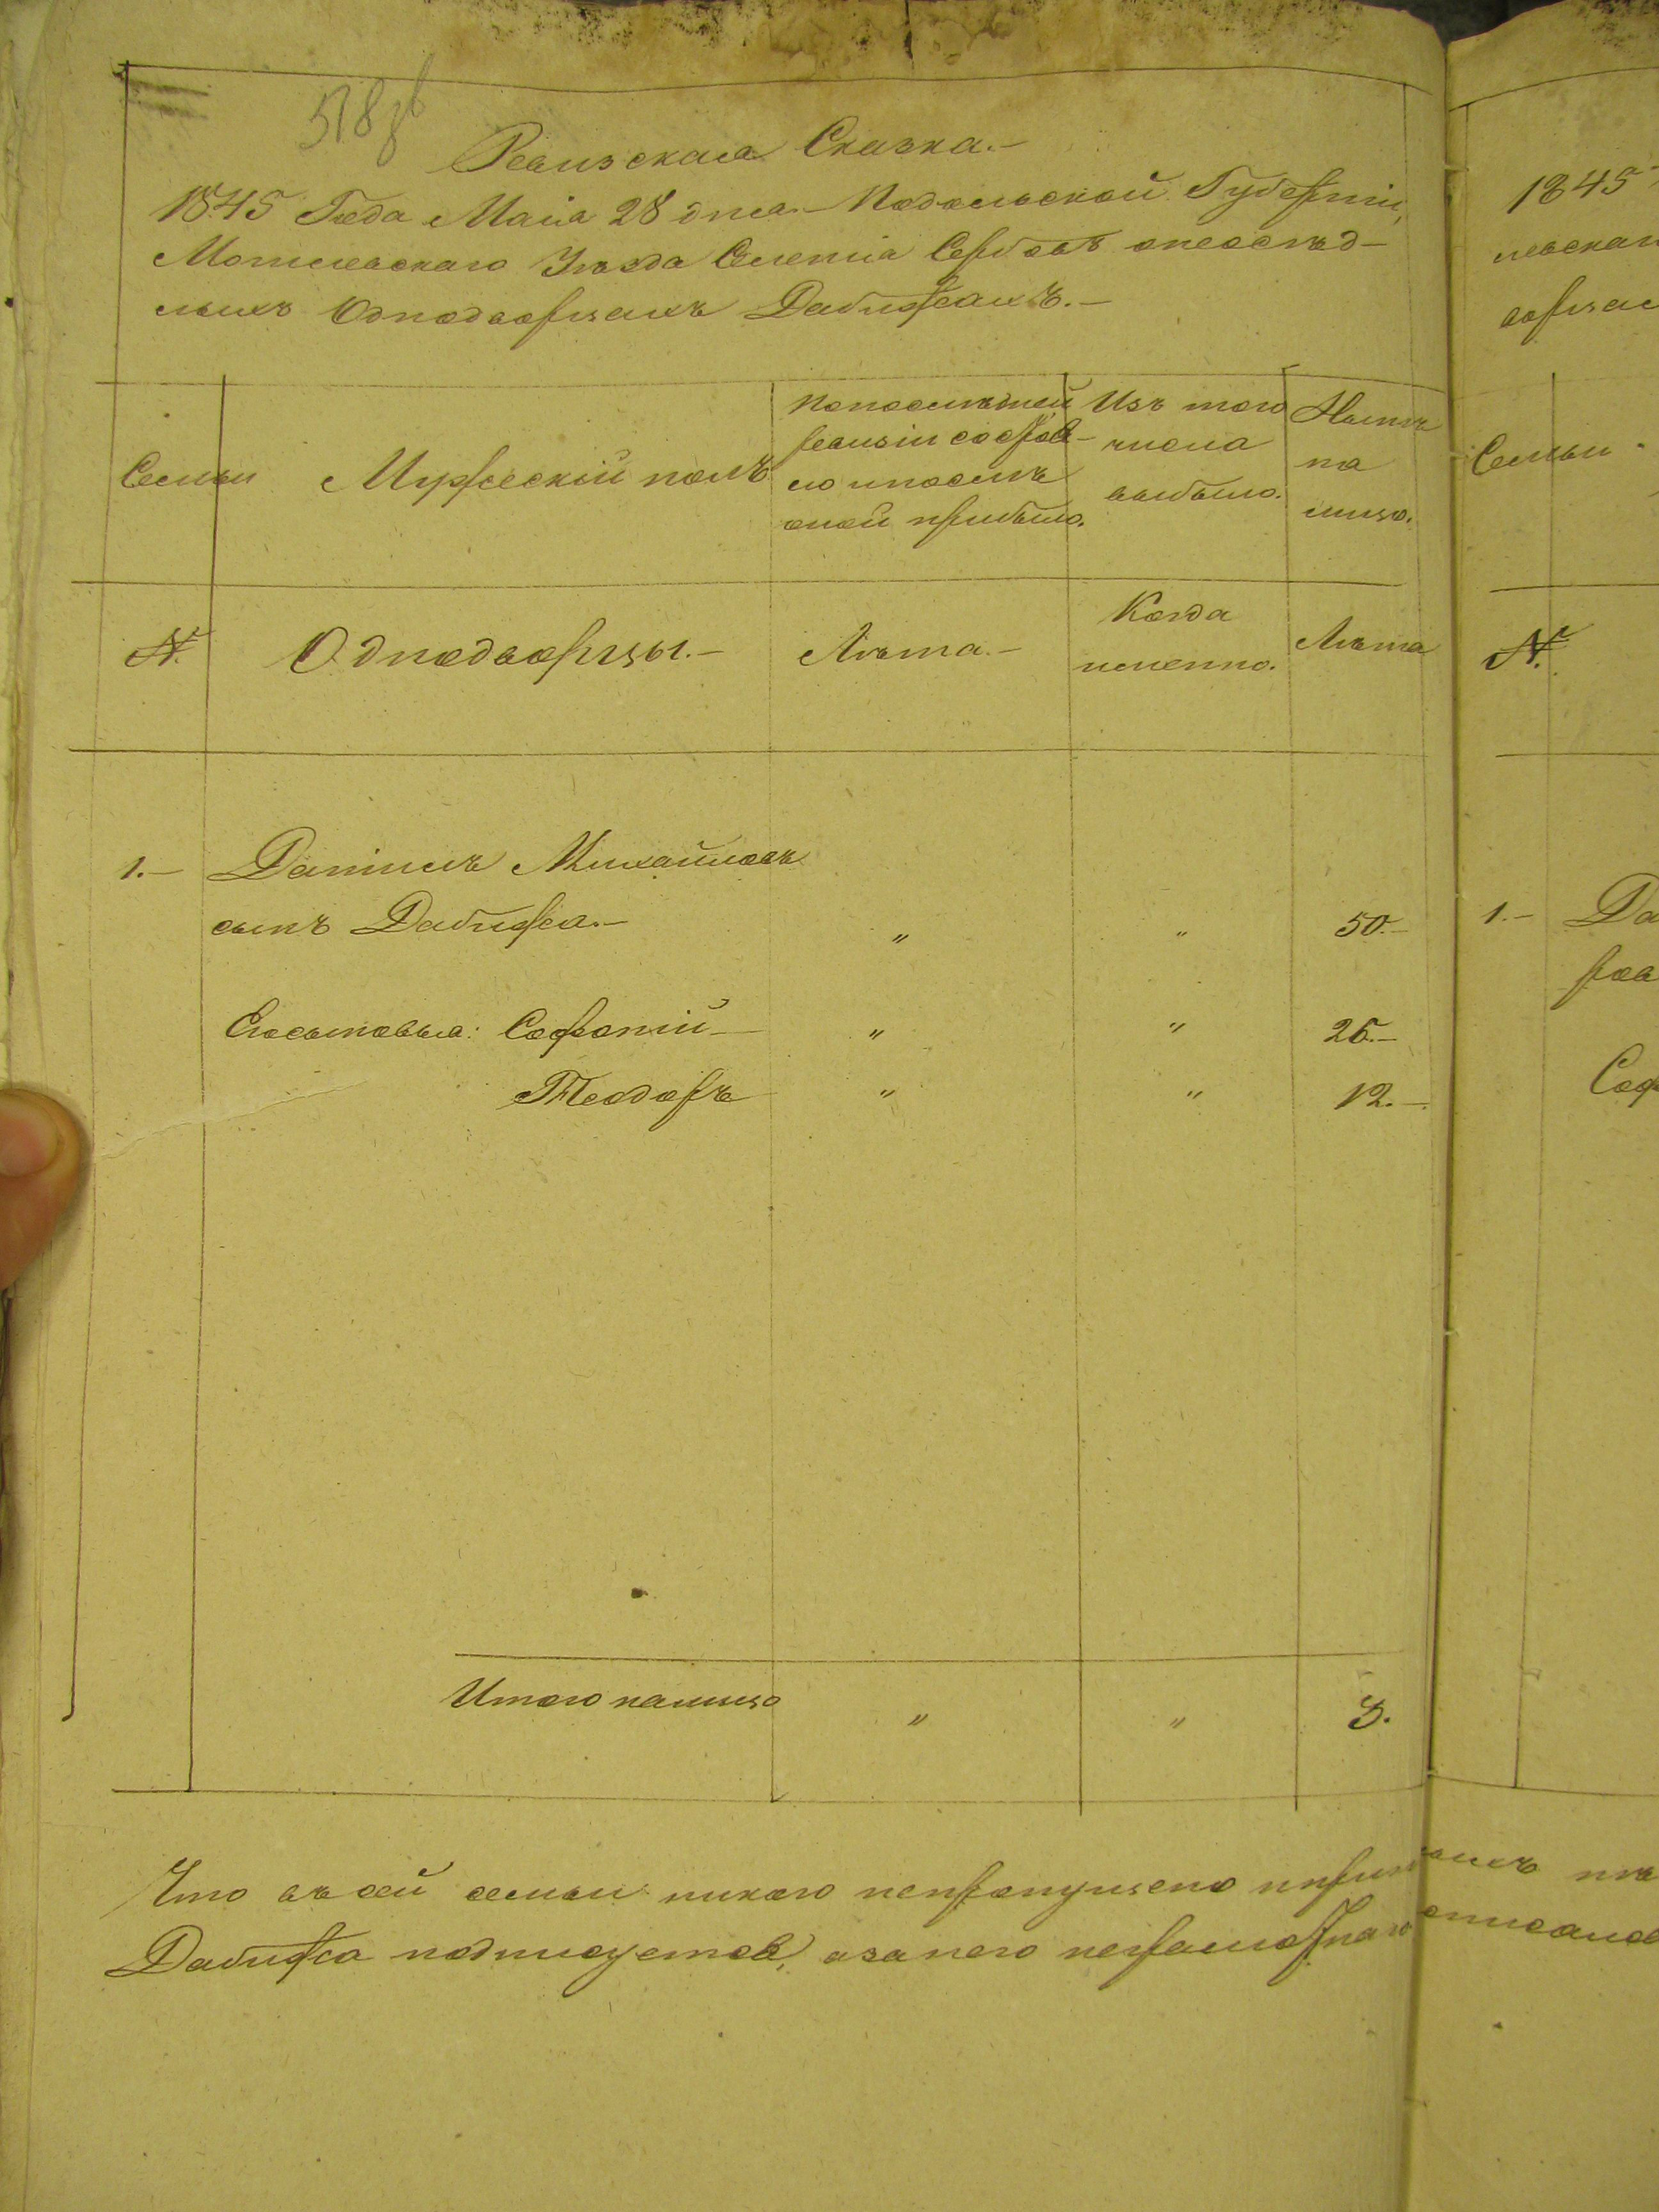 518
Ревизская Сказка.-
1845 Года Маия 28 дня.- Подольской Губерніи,
Могилевскаго Уѣзда Селенія Сербовъ онеосѣд-
лыхъ Однодворцахъ
Семьи
Мужескій полъ
Попослѣдней
ревизіи состоя-
ло ипослѣ
оной прибыло.
Изъ того
числа
выбыло.
Нынѣ
на
лицо.
N.
Однодворцы.-
Лѣта.-
Когда
именно.
Лѣта
1.- Даніилъ Михайловъ
сынъ " " 50.-
Егосыновья: Софоній- " " 25.-
Теодоръ " " 12.-
Итого налицо " " 3.
Что въ сей семьи никого непропущено
подписуется,азанего неграмотнаго
1845
Семьи
N.
1.- Да
Соф